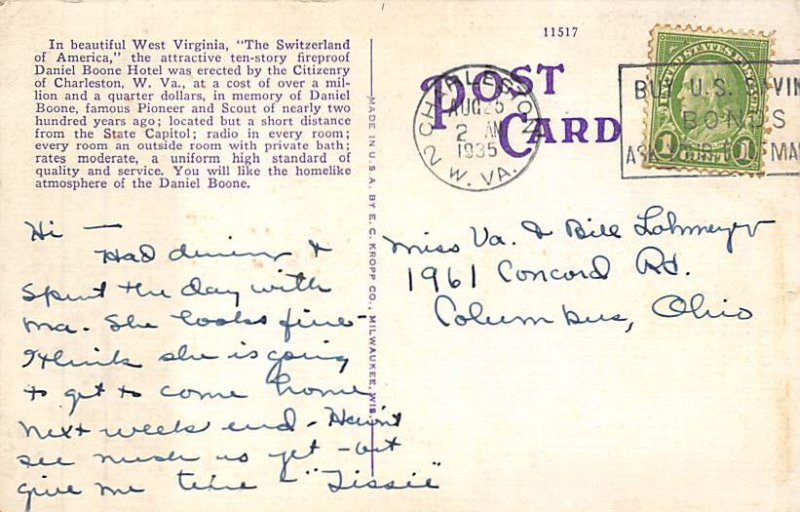 11517
In beautiful West Virginia, "The Switzerland
of America," the attractive ten-story fireproof
Daniel Boone Hotel was erected by the Citizenry
of Charleston, W. Va., at a cost of over a mil-
lion and a quarter dollars, in memory of Daniel
Boone, famous Pioneer and Scout of nearly two
hundred years ago; located but a short distance
from the State Capitol; radio in every room;
every room an outside room with private bath;
rates moderate, a uniform high standard of
quality and service. You will like the homelike
atmosphere of the Daniel Boone.
MADE IN U.S.A. BY E. C. KROPP CO., MILWAUKEE, WIS.
POST
CARD
CHARLESTON
AUG 25
2 AM
1935
2 W. VA.
UNITED STATES POSTAGE
1 1
BUY U.S. VIN
BONUS
ASK MA
Hi —
Had dinner &
spent the day with
Ma. She looks fine -
I think she is going
to get to come home
next weeks end - Haven't
see much us yet - but
give me time - "Lissie"
Miss Va. & Bill Lohmeyer
1961 Concord Rd.
Columbus, Ohio